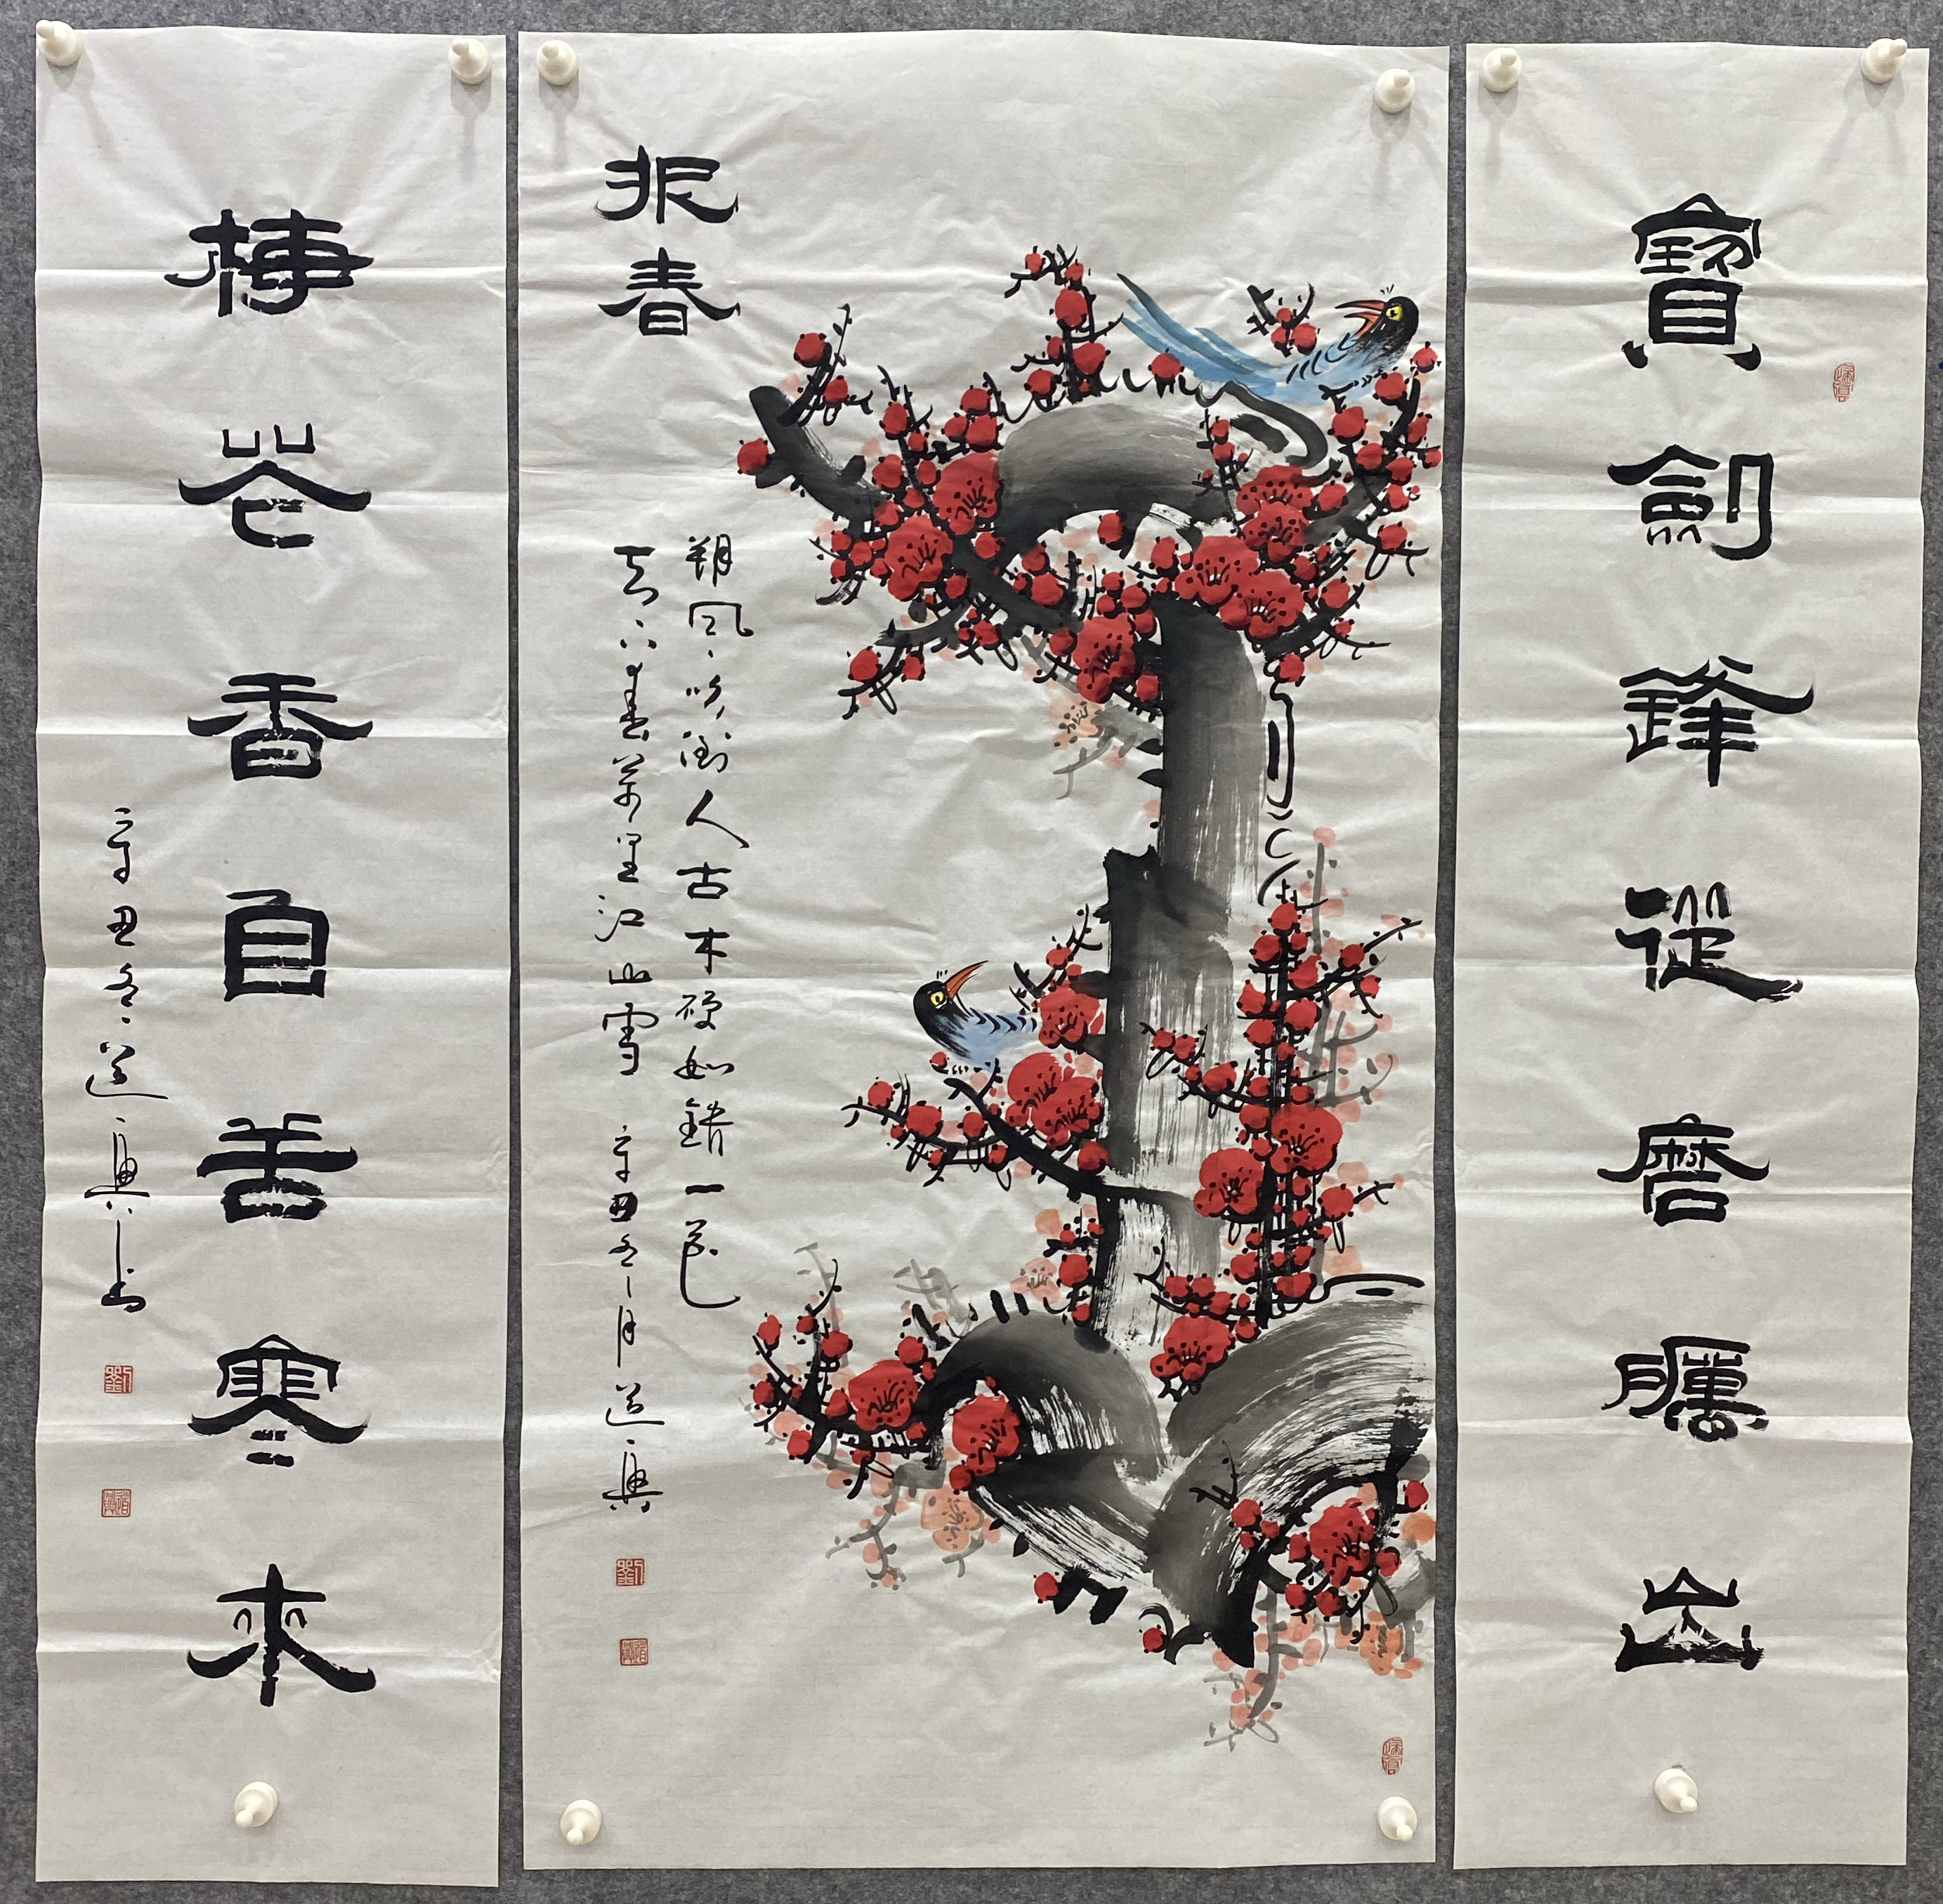 寶劍鋒從磨礪出
报春
朔風吹倒人古木硬如鐵一花
天下春萬里江山雪 辛丑冬月道興
梅花香自苦寒來
辛丑冬道興书